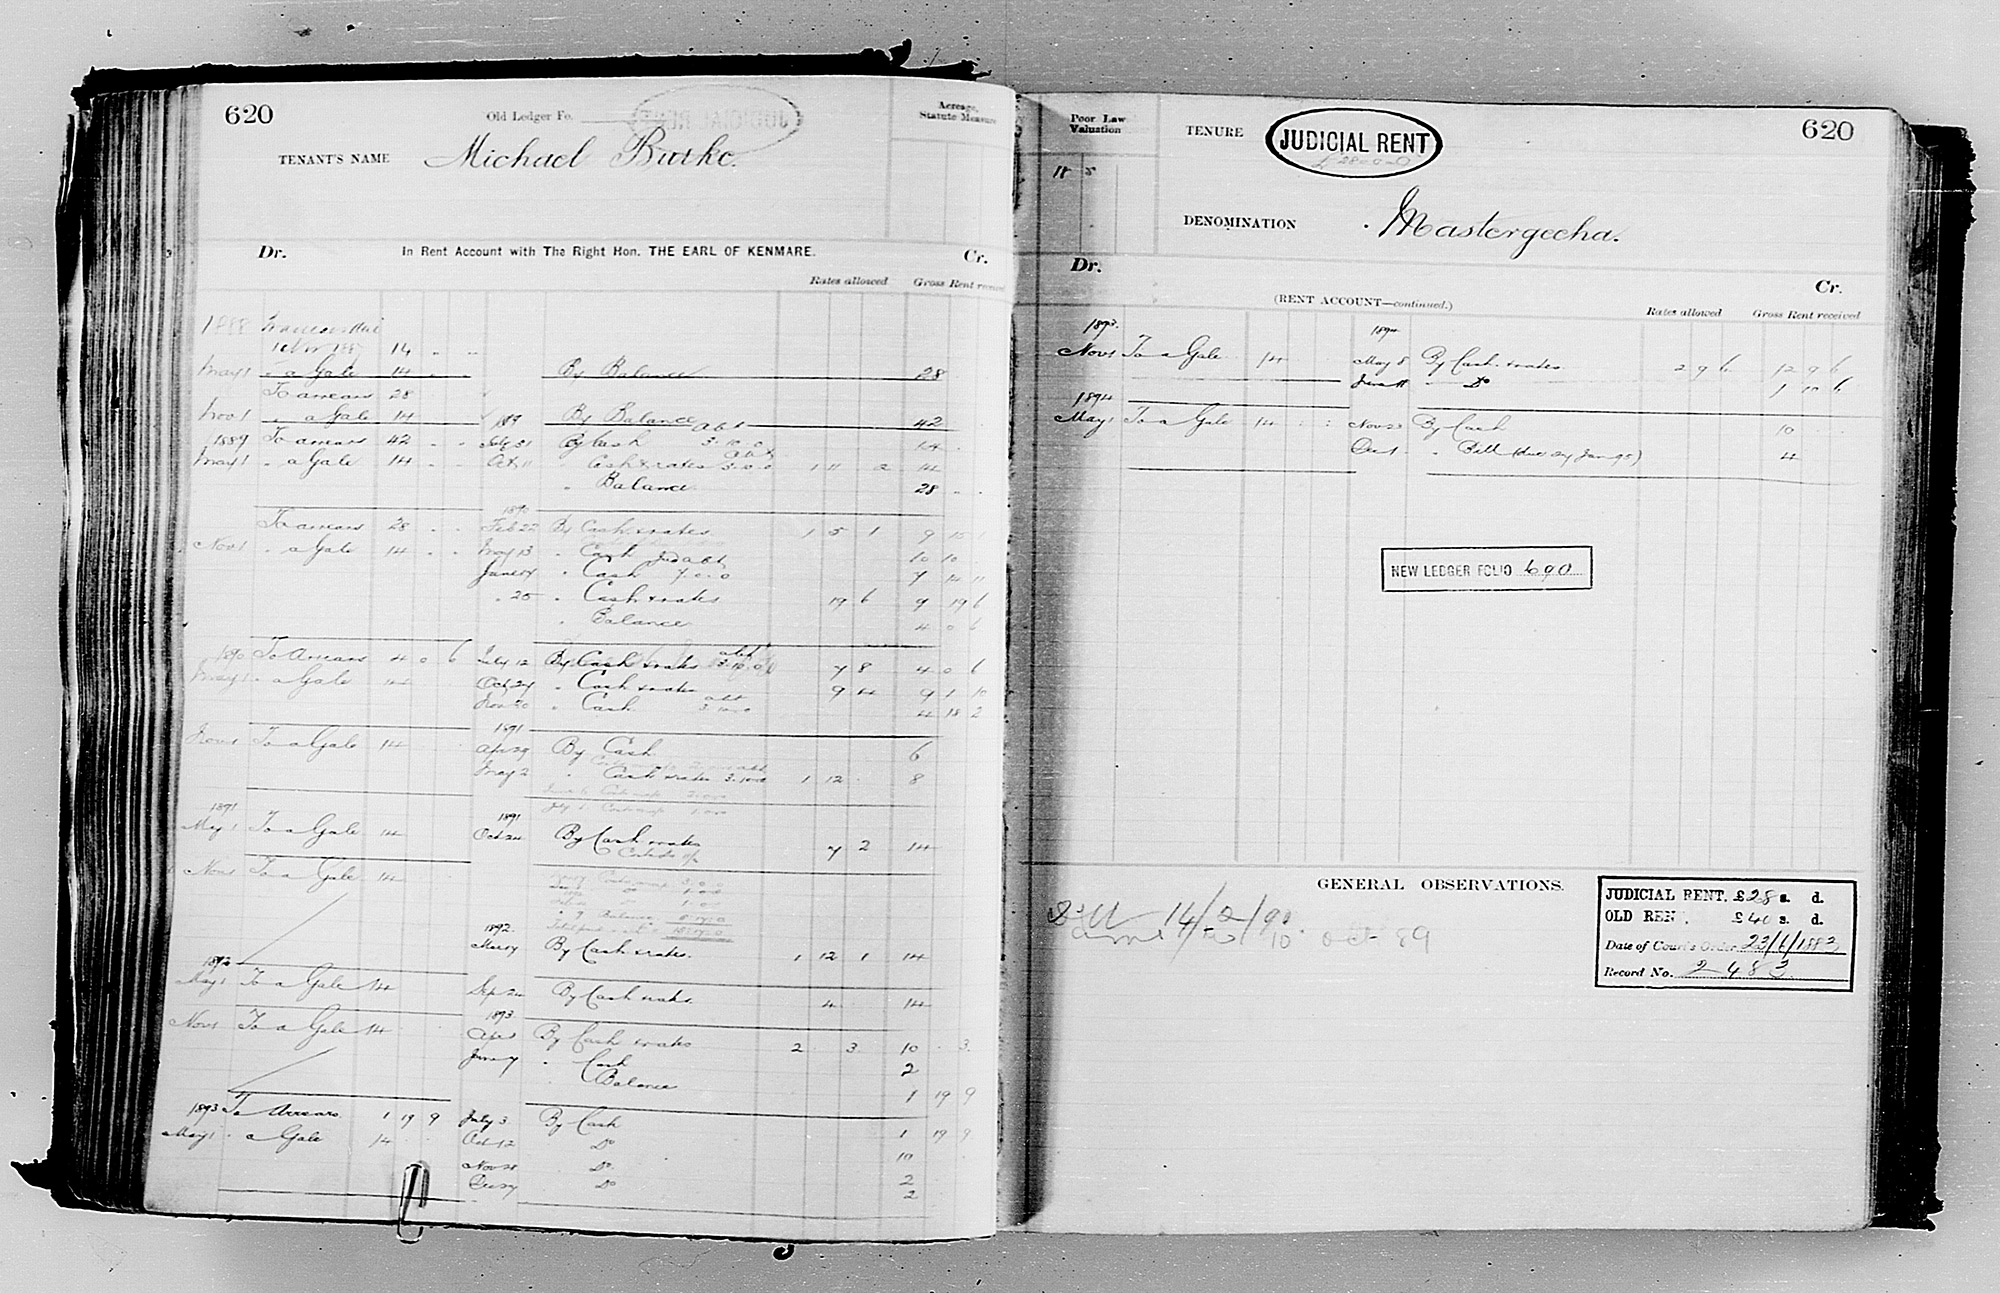 620
Old Ledger Fo.
Acreage, Statute Measure
TENANT'S NAME Michael Burke.
Dr. In Rent Account with The Right Hon. THE EARL OF KENMARE. Cr.
Rates allowed Gross Rent received
1888
14 " "
May 1 " a Gale 14 " " By Balance 28
To arrears 28
Nov 1 " a Gale 14 1889 By Balance 42
1889 To arrears 42 " " July 31 By Cash abt 3.10.0 14
May 1 " a Gale 14 " " Oct 11 " Cash & rates abt 3.0.0 1 11 2 14
" Balance 28 " "
1890
To arrears 28 " " Feb 22 By Cash & rates 1 5 1 9 15 1
Nov 1 " a Gale 14 " " May 13 " Cash 10 10
June 4 " Cash 7.0.0 7 14 11
" 25 " Cash & rates 19 6 9 19 6
" Balance 4 0 6
1890 To Arrears 4 0 6 July 12 By Cash & rates abt 3.10.0 7 8 4 0 6
May 1 " a Gale 14 Oct 24 " Cash & rates 9 4 9 1 10
Nov 20 " Cash abt 3.10.0 4 18 2
1891
Nov 1 To a Gale 14 Apr 29 By Cash 6
May 2 " Cash & rates 3.10.0 1 12 8
1891 1891
May 1 To a Gale 14 Oct 24 By Cash & rates 7 2 14
Nov 1 To a Gale 14
1892
By Cash & rates. 1 12 1 14
1892
May 1 To a Gale 14 Sep 24 By Cash & rates 4 14
1893
Nov 1 To a Gale 14 By Cash & rates 2 3 10 3
June 7 " Cash 2
" Balance 1 19 9
1893 To Arrears 1 19 9 July 3 By Cash 1 19 9
May 1 " a Gale 14 Oct 12 Do 10
Do 2
Do 2
Poor Law Valuation
TENURE JUDICIAL RENT 620
£28.0.0
DENOMINATION Mastergeeha.
Dr. Cr.
(RENT ACCOUNT—continued.)
Rates allowed Gross Rent received
1893 1894
Nov 1 To a Gale 14 May 8 By Cash & rates 2 9 6 12 9 6
June 11 " Do 1 10 6
1894
May 1 To a Gale 14 Nov 23 By Cash 10
Dec 1 " Bill (due 24 Jan 95) 4
NEW LEDGER FOLIO 690
GENERAL OBSERVATIONS.
14/2/90
10 Oct 89
JUDICIAL RENT. £28 s. d.
OLD RENT. £40 s. d.
Date of Court's Order 23/6/1883
Record No. 2483